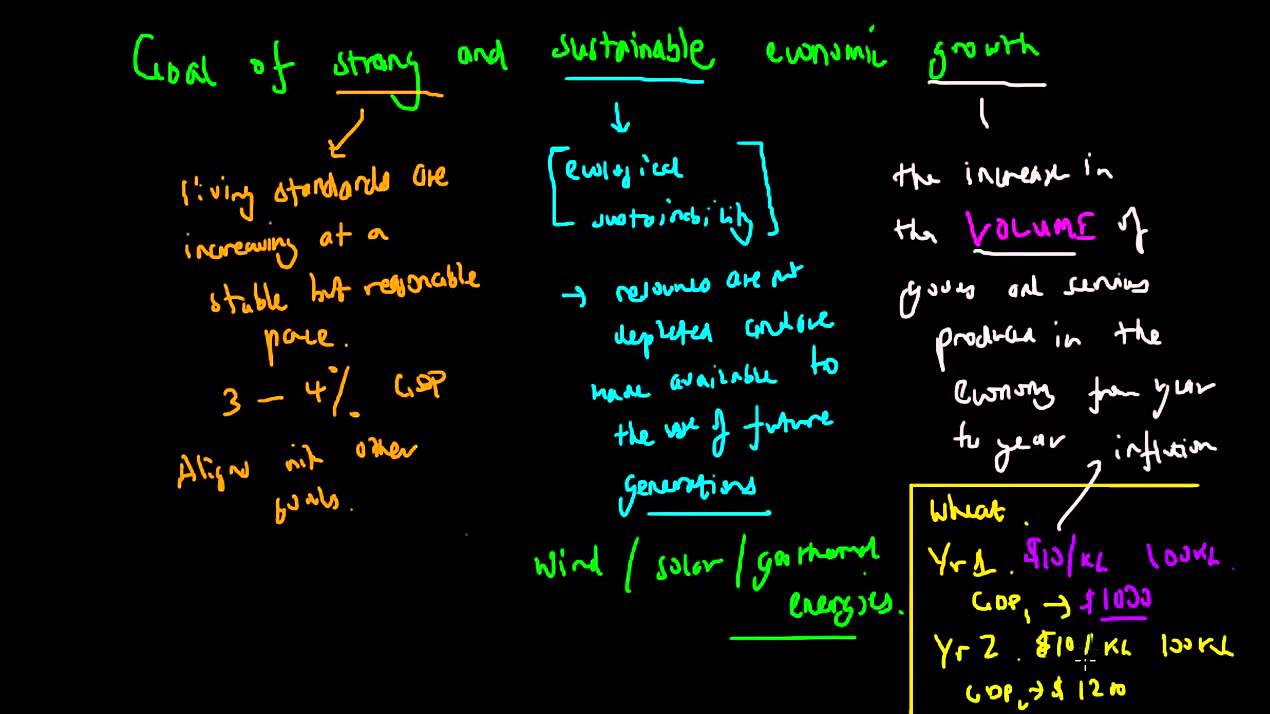 Goal of strong and sustainable economic growth
living standards are
increasing at a
stable but reasonable
pace.
3 – 4% GDP
Aligns with other
goals.
[ecological
sustainability]
→ resources are not
depleted and are
made available to
the use of future
generations
Wind / solar / geothermal
energies.
the increase in
the VOLUME of
goods and services
produced in the
economy from year
to year
inflation
Wheat.
Yr 1. $10/KL 100KL.
GDP₁ → $1000
Yr 2. $10/KL 100KL
GDP₂ → $1200